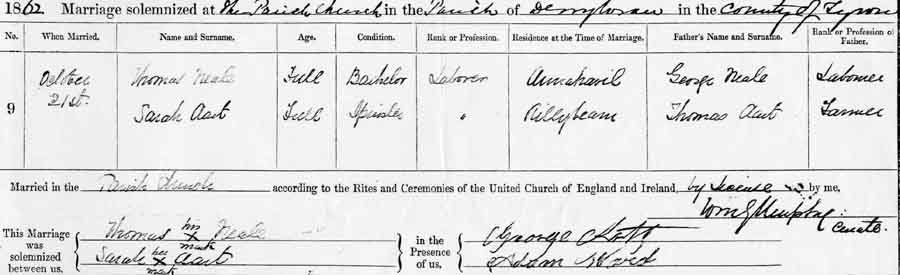 1862 Marriage solemnized at the Parish Church in the Parish of Derryloran in the County of Tyrone
No. When Married. Name and Surname. Age. Condition. Rank or Profession. Residence at the Time of Marriage. Father's Name and Surname. Rank or Profession of Father.
9 October 21st. Thomas Neale Full Bachelor Laborer Annahavil George Neale Laborer
Sarah Aart Full Spinster " Killybearn Thomas Aart Farmer
Married in the Parish Church according to the Rites and Ceremonies of the United Church of England and Ireland, by license by me,
Curate.
This Marriage was solemnized between us, Thomas his x mark Neale
Sarah her x mark Aart
in the Presence of us, George
Adam